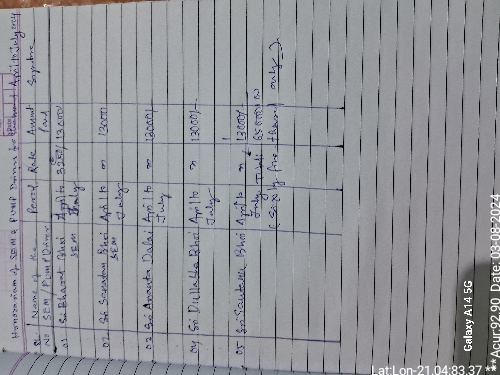 Honorarium of SEM & PUMP Driver for April to July 2024
Sl No Name of the SEM/PUMP Driver Period Rate Amount Paid Signature
01 Sri Bharat Bhoi SEM April to July 3250/ 13000/
02 Sri Sanatan Bhoi SEM April to July " 13000
03 Sri Ananta Dalai April to July " 13000/
04 Sri Dullabha Bhoi April to July " 13000/-
05 Sri Santanu Bhoi April to July " 13000/
Total 65000.00
(Sixty five thousand only).
Galaxy A14 5G
Lat:Lon-21.04:83.37 ** Acur:92.90 Date: 03-08-2024